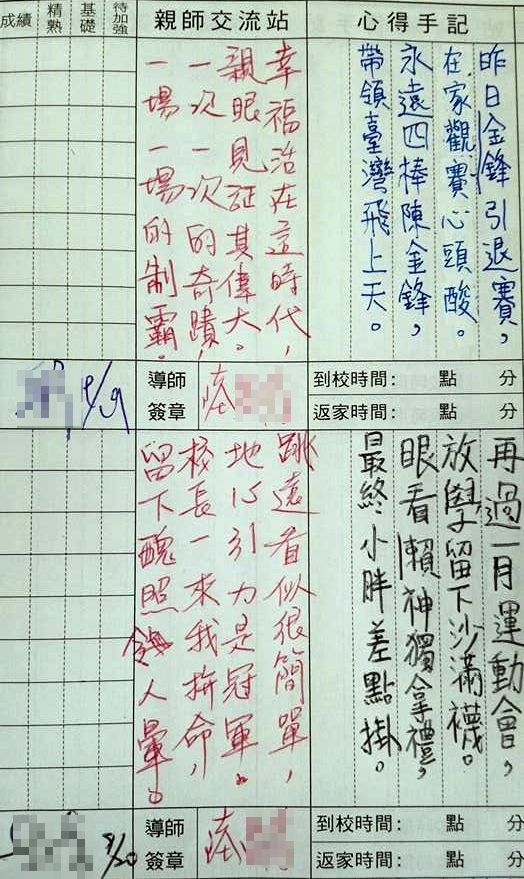 成績
精熟
基礎
待加強
親師交流站
心得手記
昨日金鋒引退賽，
在家觀賽心頭酸。
永遠四棒陳金鋒，
帶領臺灣飛上天。
幸福活在這時代，
親眼見証其偉大。
一次一次的奇蹟，
一場一場的制霸。
導師簽章
陸
到校時間：　點　分
返家時間：　點　分
再過一月運動會，
放學留下沙滿襪。
眼看賴神獨拿禮，
最終小胖差點掛。
跳遠看似很簡單，
地心引力是冠軍。
校長一來我拚命，
留下醜照
人暈。
9/20
導師簽章
陸
到校時間：　點　分
返家時間：　點　分